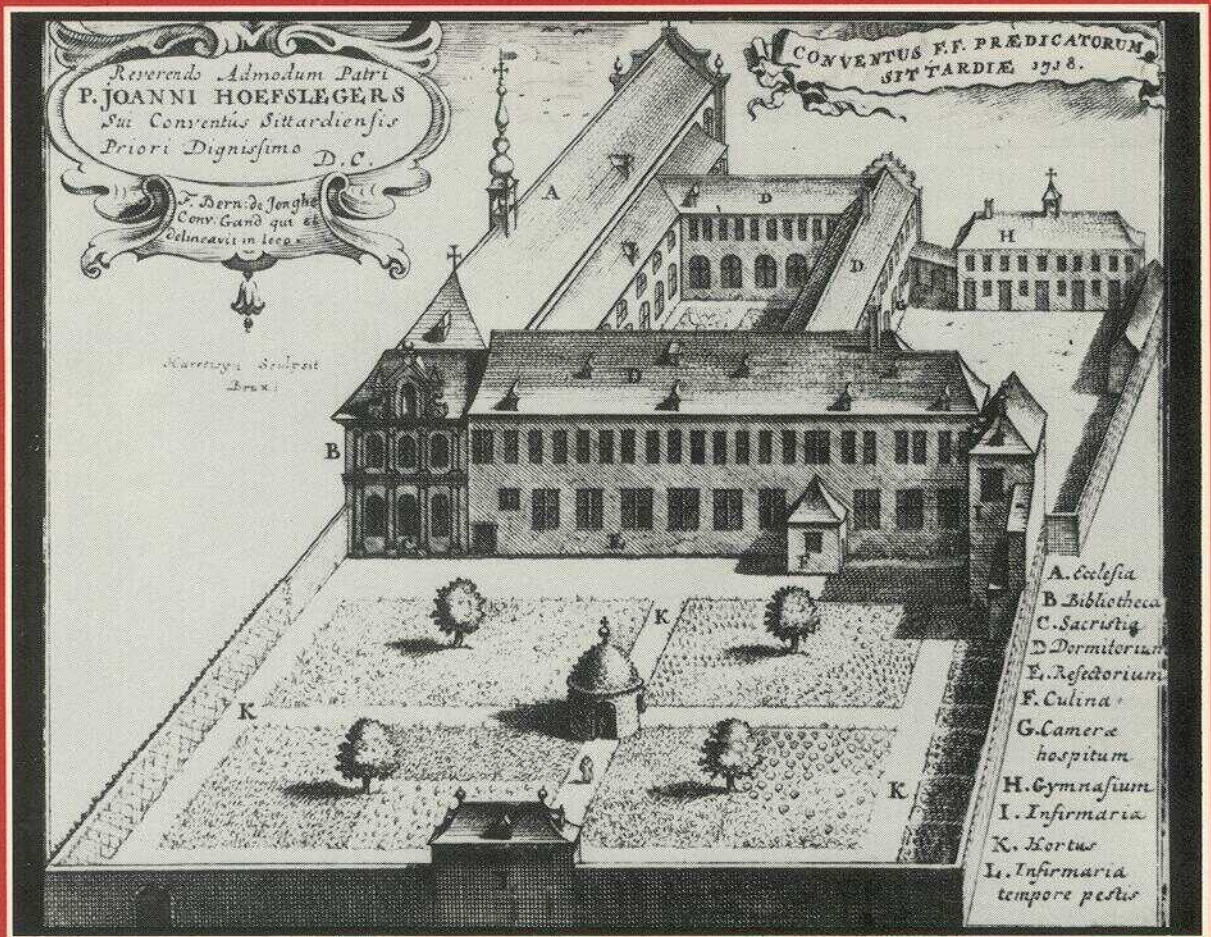 Reverendo Admodum Patri
P. JOANNI HOEFSLEGERS
Sui Conventús Sittardiensis
Priori Dignissimo
D. C.
F. Bern: de Jonghe
Conv. Gand qui et
delineavit in loco
Sculpsit
Brux:
CONVENTUS F.F. PRÆDICATORUM
SITTARDIÆ 1718.
A
D
D
H
G
D
B
I
E
F
K
K
K
A. Ecclesia
B. Bibliotheca
C. Sacristia
D. Dormitorium
E. Refectorium
F. Culina
G. Cameræ
hospitum
H. Gymnasium
I. Infirmaria
K. Hortus
L. Infirmaria
tempore pestis